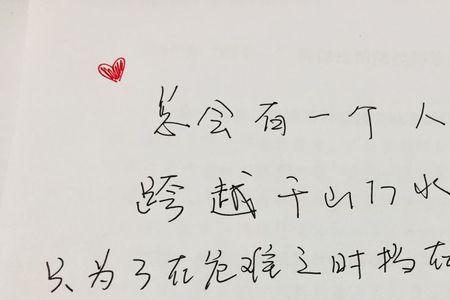 总会有一个人
跨越千山万水
只为了在危难之时挡在